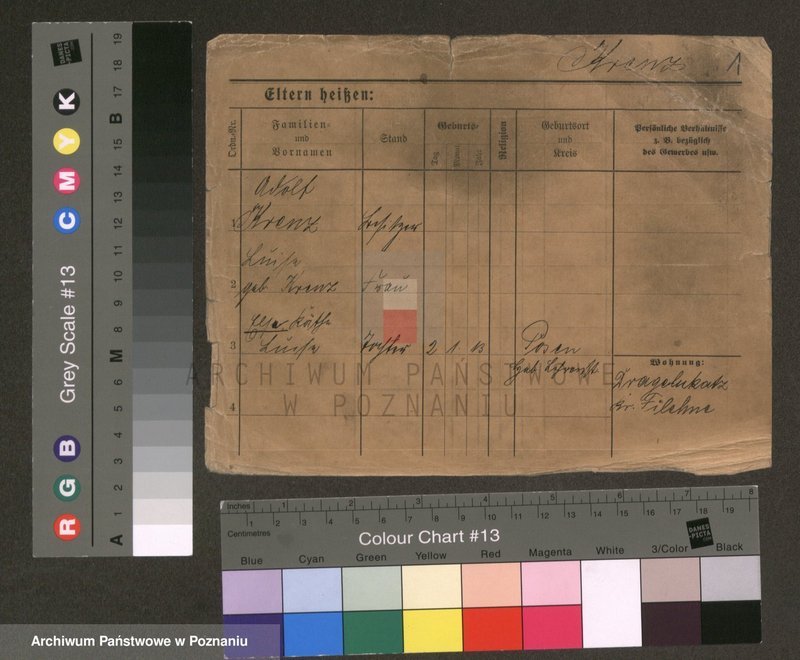 Krenz 1
Eltern heißen:
Ordn.-Nr. Familien- und Vornamen Stand Geburts- Tag Monat Jahr Religion Geburtsort und Kreis Persönliche Verhältnisse z. B. bezüglich des Gewerbes usw.
Adolf
1 Krenz Besitzer
Luise
2 geb. Krenz Frau
Else Käthe
3 Luise Tochter 2 1 13 Posen
Wohnung:
Dragelukatz
4 Kr. Filehne
ARCHIWUM PAŃSTWOWE
W POZNANIU
Grey Scale #13
R G B C M Y K
A 1 2 3 4 5 6 M 8 9 10 11 12 13 14 15 B 17 18 19
DANES-PICTA
Inches 1 2 3 4 5 6 7 8
Centimetres 1 2 3 4 5 6 7 8 9 10 11 12 13 14 15 16 17 18 19
Colour Chart #13
DANES-PICTA
Blue Cyan Green Yellow Red Magenta White 3/Color Black
Archiwum Państwowe w Poznaniu